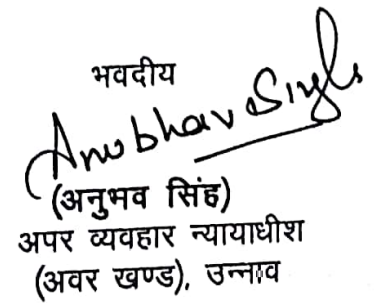 भवदीय
Anubhav Singh
(अनुभव सिंह)
अपर व्यवहार न्यायाधीश
(अवर खण्ड), उन्नाव